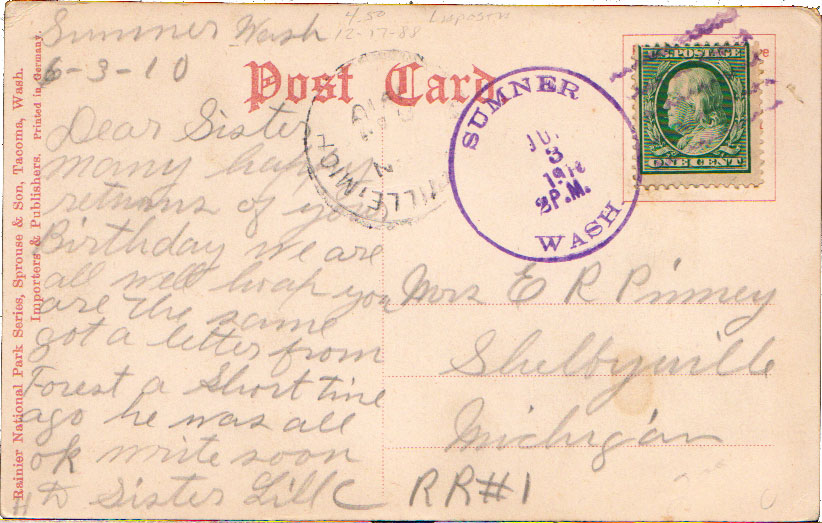 4.50 
12-17-88
Sumner Wash
6-3-10
Post Card
Dear Sister
many happy
returns of your
Birthday we are
all well hoah you
are the same
got a letter from
Forest a Short time
ago he was all
ok write soon
to Sister Lill
SUMNER
3
2 P.M.
WASH
U.S. POSTAGE
ONE CENT
Mrs E R Pinney
Shelbyville
Michigan
RR#1
VILLE, MICH
Rainier National Park Series, Sprouse & Son, Tacoma, Wash.
Importers & Publishers. Printed in Germany.